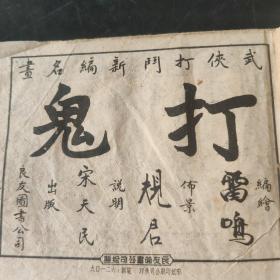 武俠打鬥新編名畫
打鬼
編繪
雷鳴
佈景
規君
說明
宋天民
出版
良友圖書公司